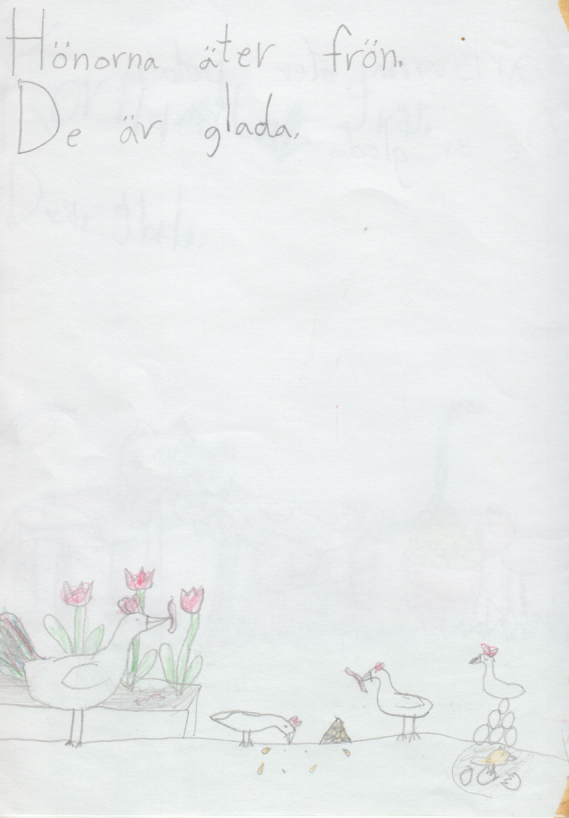 Hönorna äter frön.
De är glada.